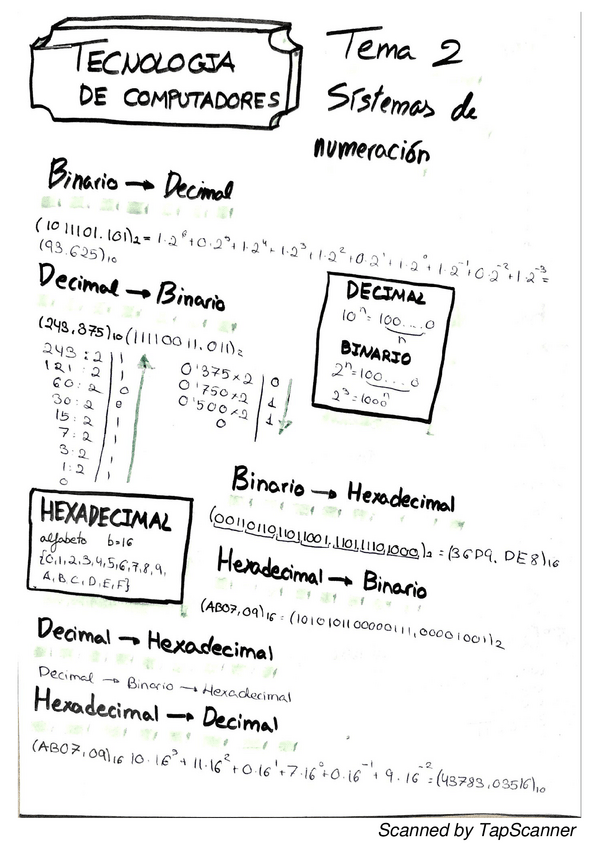 TECNOLOGIA
DE COMPUTADORES
Tema 2
Sistemas de
numeración
Binario → Decimal
(1011101.101)₂ = 1·2⁶+0·2⁵+1·2⁴+1·2³+1·2²+0·2¹+1·2⁰+1·2⁻¹+0·2⁻²+1·2⁻³=
(93.625)₁₀
Decimal → Binario
(243,375)₁₀ (11110011,011)₂
243 : 2 | 1
121 : 2 | 1
60 : 2 | 0
30 : 2 | 0
15 : 2 | 1
7 : 2 | 1
3 : 2 | 1
1 : 2 | 1
0
0'375 x 2 | 0
0'750 x 2 | 1
0'500 x 2 | 1
0
DECIMAL
10ⁿ = 100....0
n
BINARIO
2ⁿ = 100....0
n
2³ = 1000
HEXADECIMAL
alfabeto b=16
{0,1,2,3,4,5,6,7,8,9,
A,B,C,D,E,F}
Binario → Hexadecimal
(0011011011011001,110111101000)₂ = (36D9,DE8)₁₆
Hexadecimal → Binario
(AB07,09)₁₆ = (1010101100000111,00001001)₂
Decimal → Hexadecimal
Decimal → Binario → Hexadecimal
Hexadecimal → Decimal
(AB07,09)₁₆ 10·16³+11·16²+0·16¹+7·16⁰+0·16⁻¹+9·16⁻²=(43783,03516)₁₀
Scanned by TapScanner